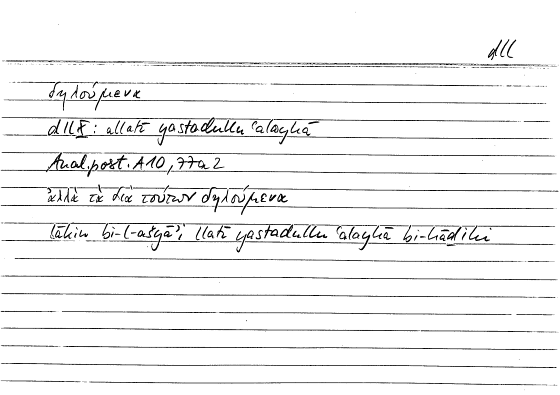 dll
δηλούμενα
dll X : allatī yastadullu ʿalayhā
Anal. post. A 10, 77a2
ἀλλὰ τὰ διὰ τούτων δηλούμενα
lākin bi-l-ašyāʾi llatī yastadullu ʿalayhā bi-hāḏihi